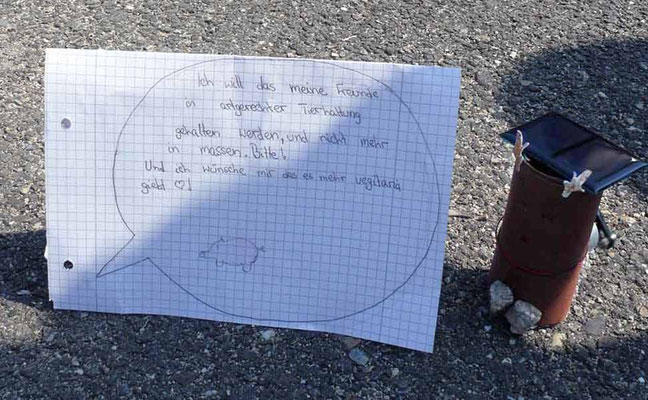 Ich will das meine Freunde
in artgerechter Tierhaltung
gehalten werden, und nicht mehr
in massen. Bitte!
Und ich wünsche mir das es mehr vegitaria
giebt ♡!